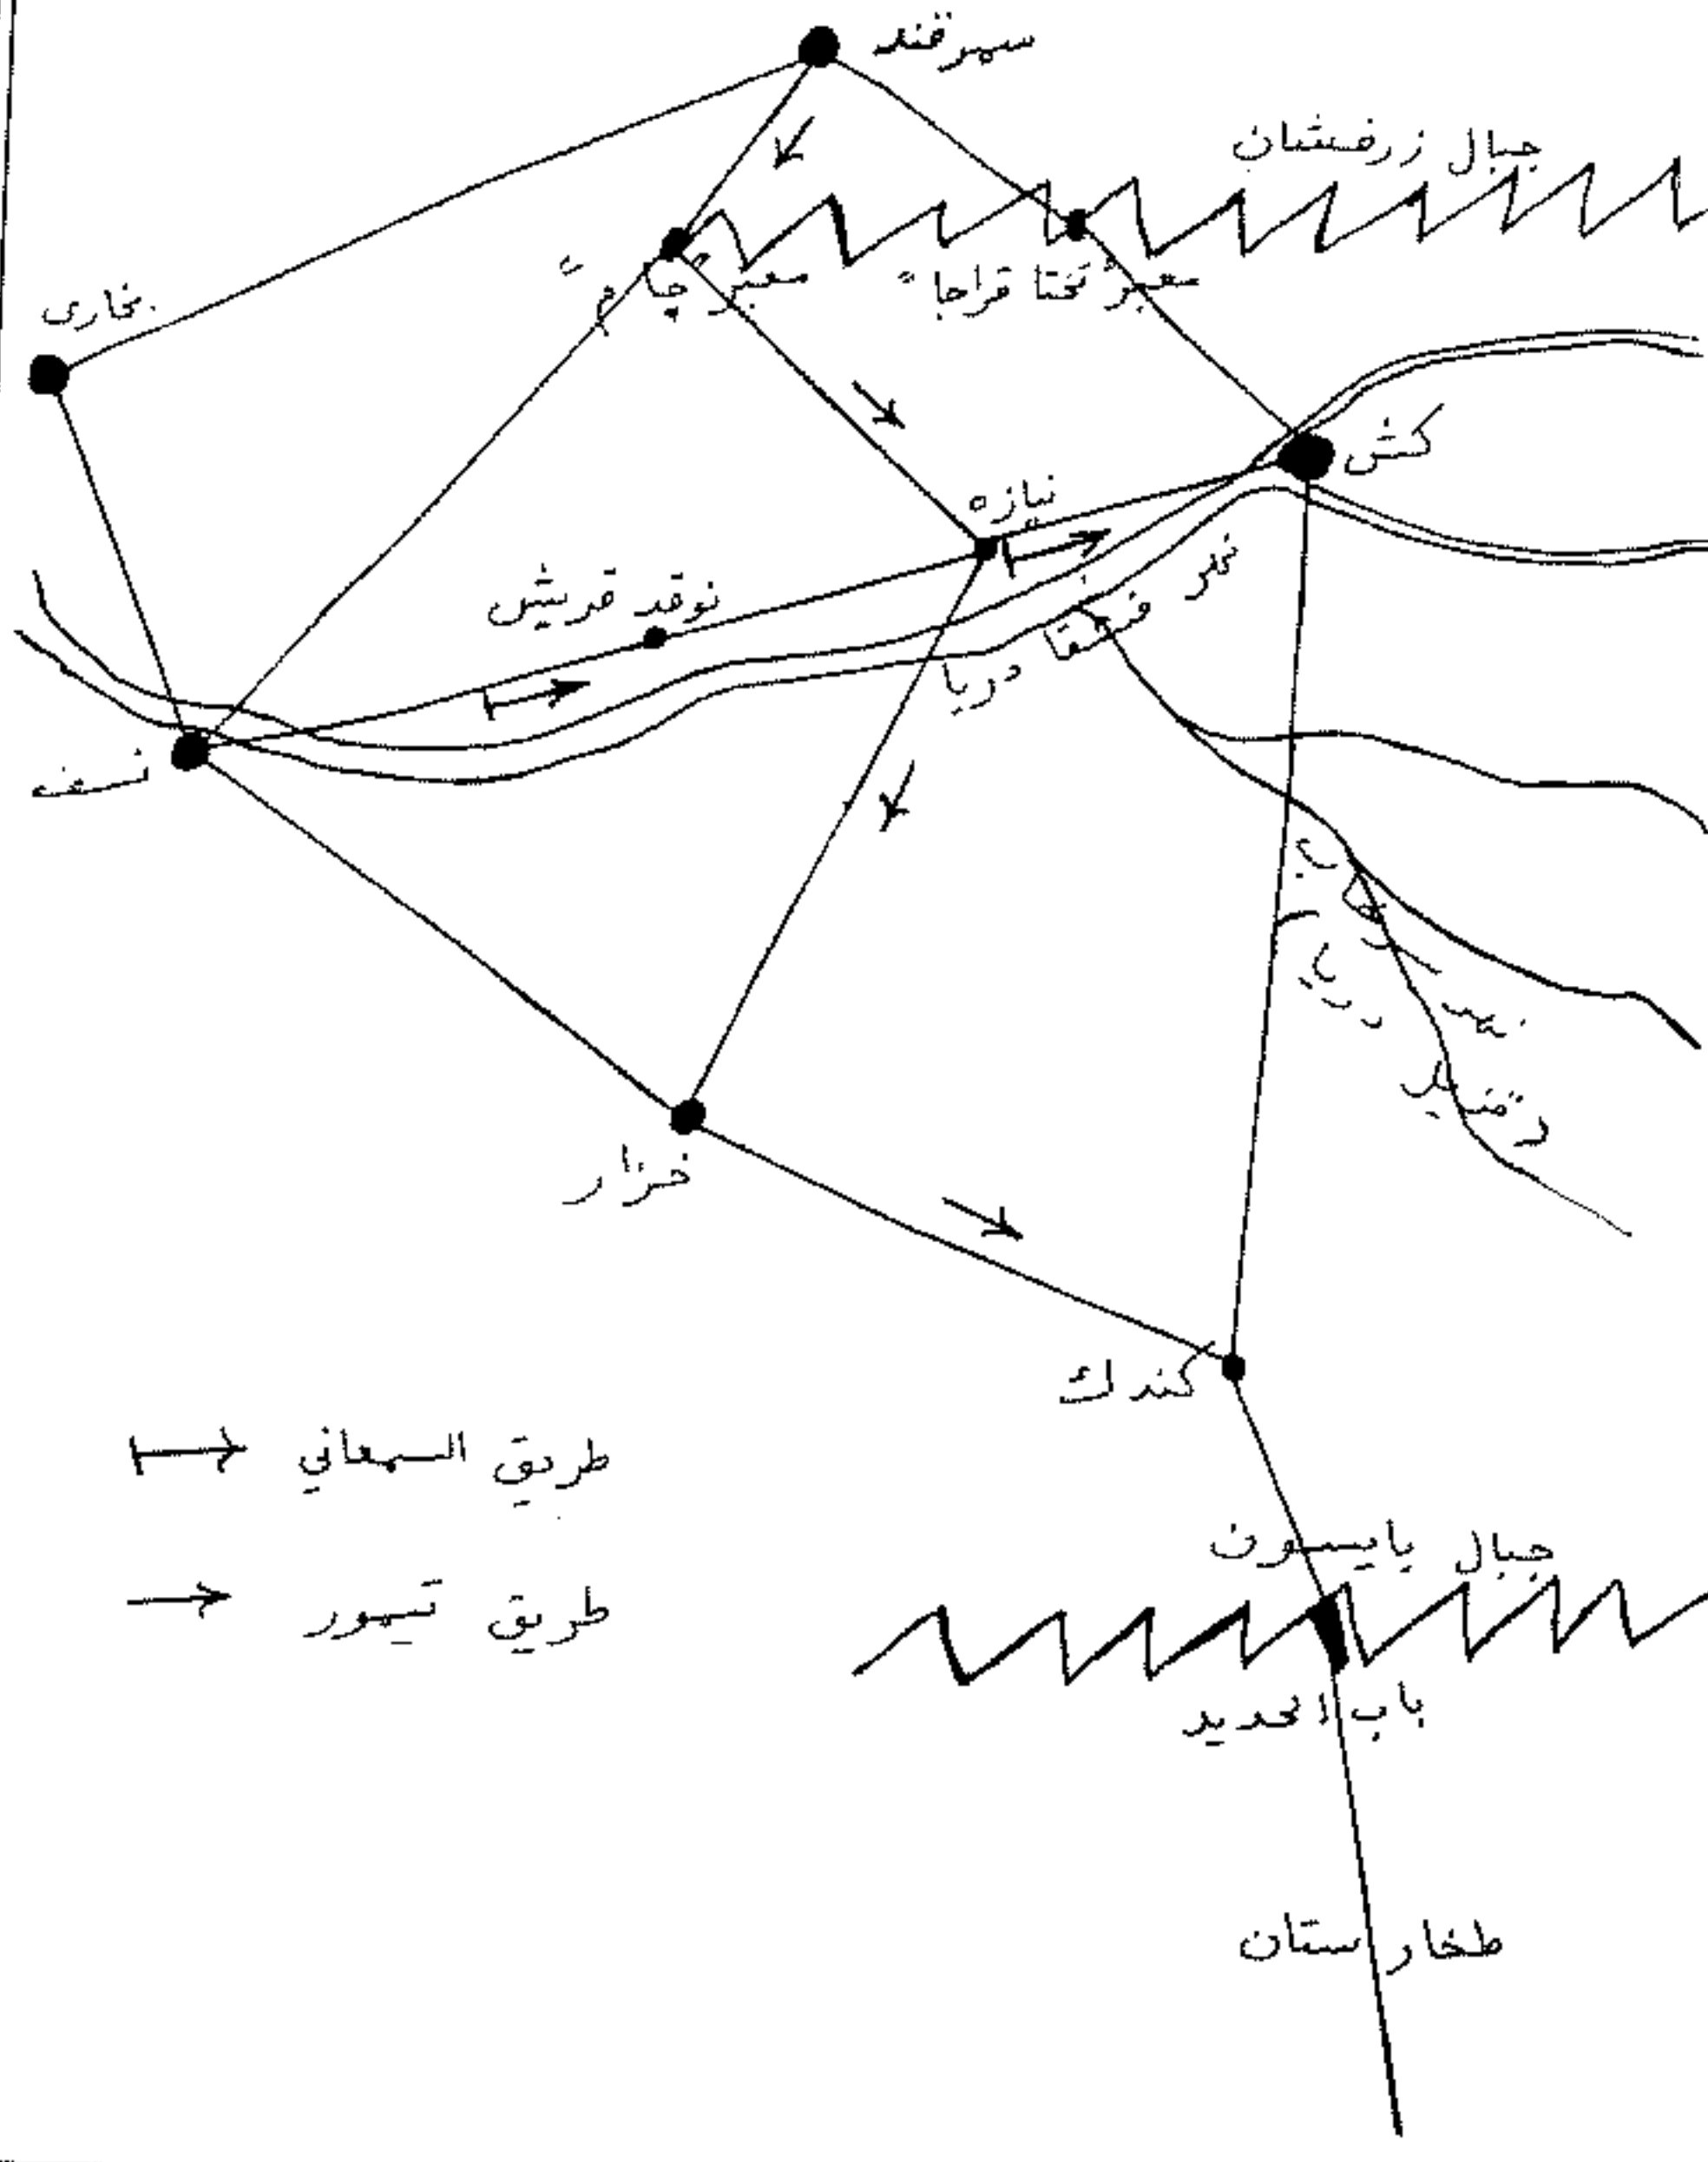 سمرقند
جبال زرفشان
معبر "تختا قراجا"
معبر "چام"
بخارى
كش
نيازه
نوقد قريش
نهر
دريا
نسف
نهر
دريا
خزار
كندك
طريق السمعاني
طريق تيمور
جبال بايسون
باب الحديد
طخارستان